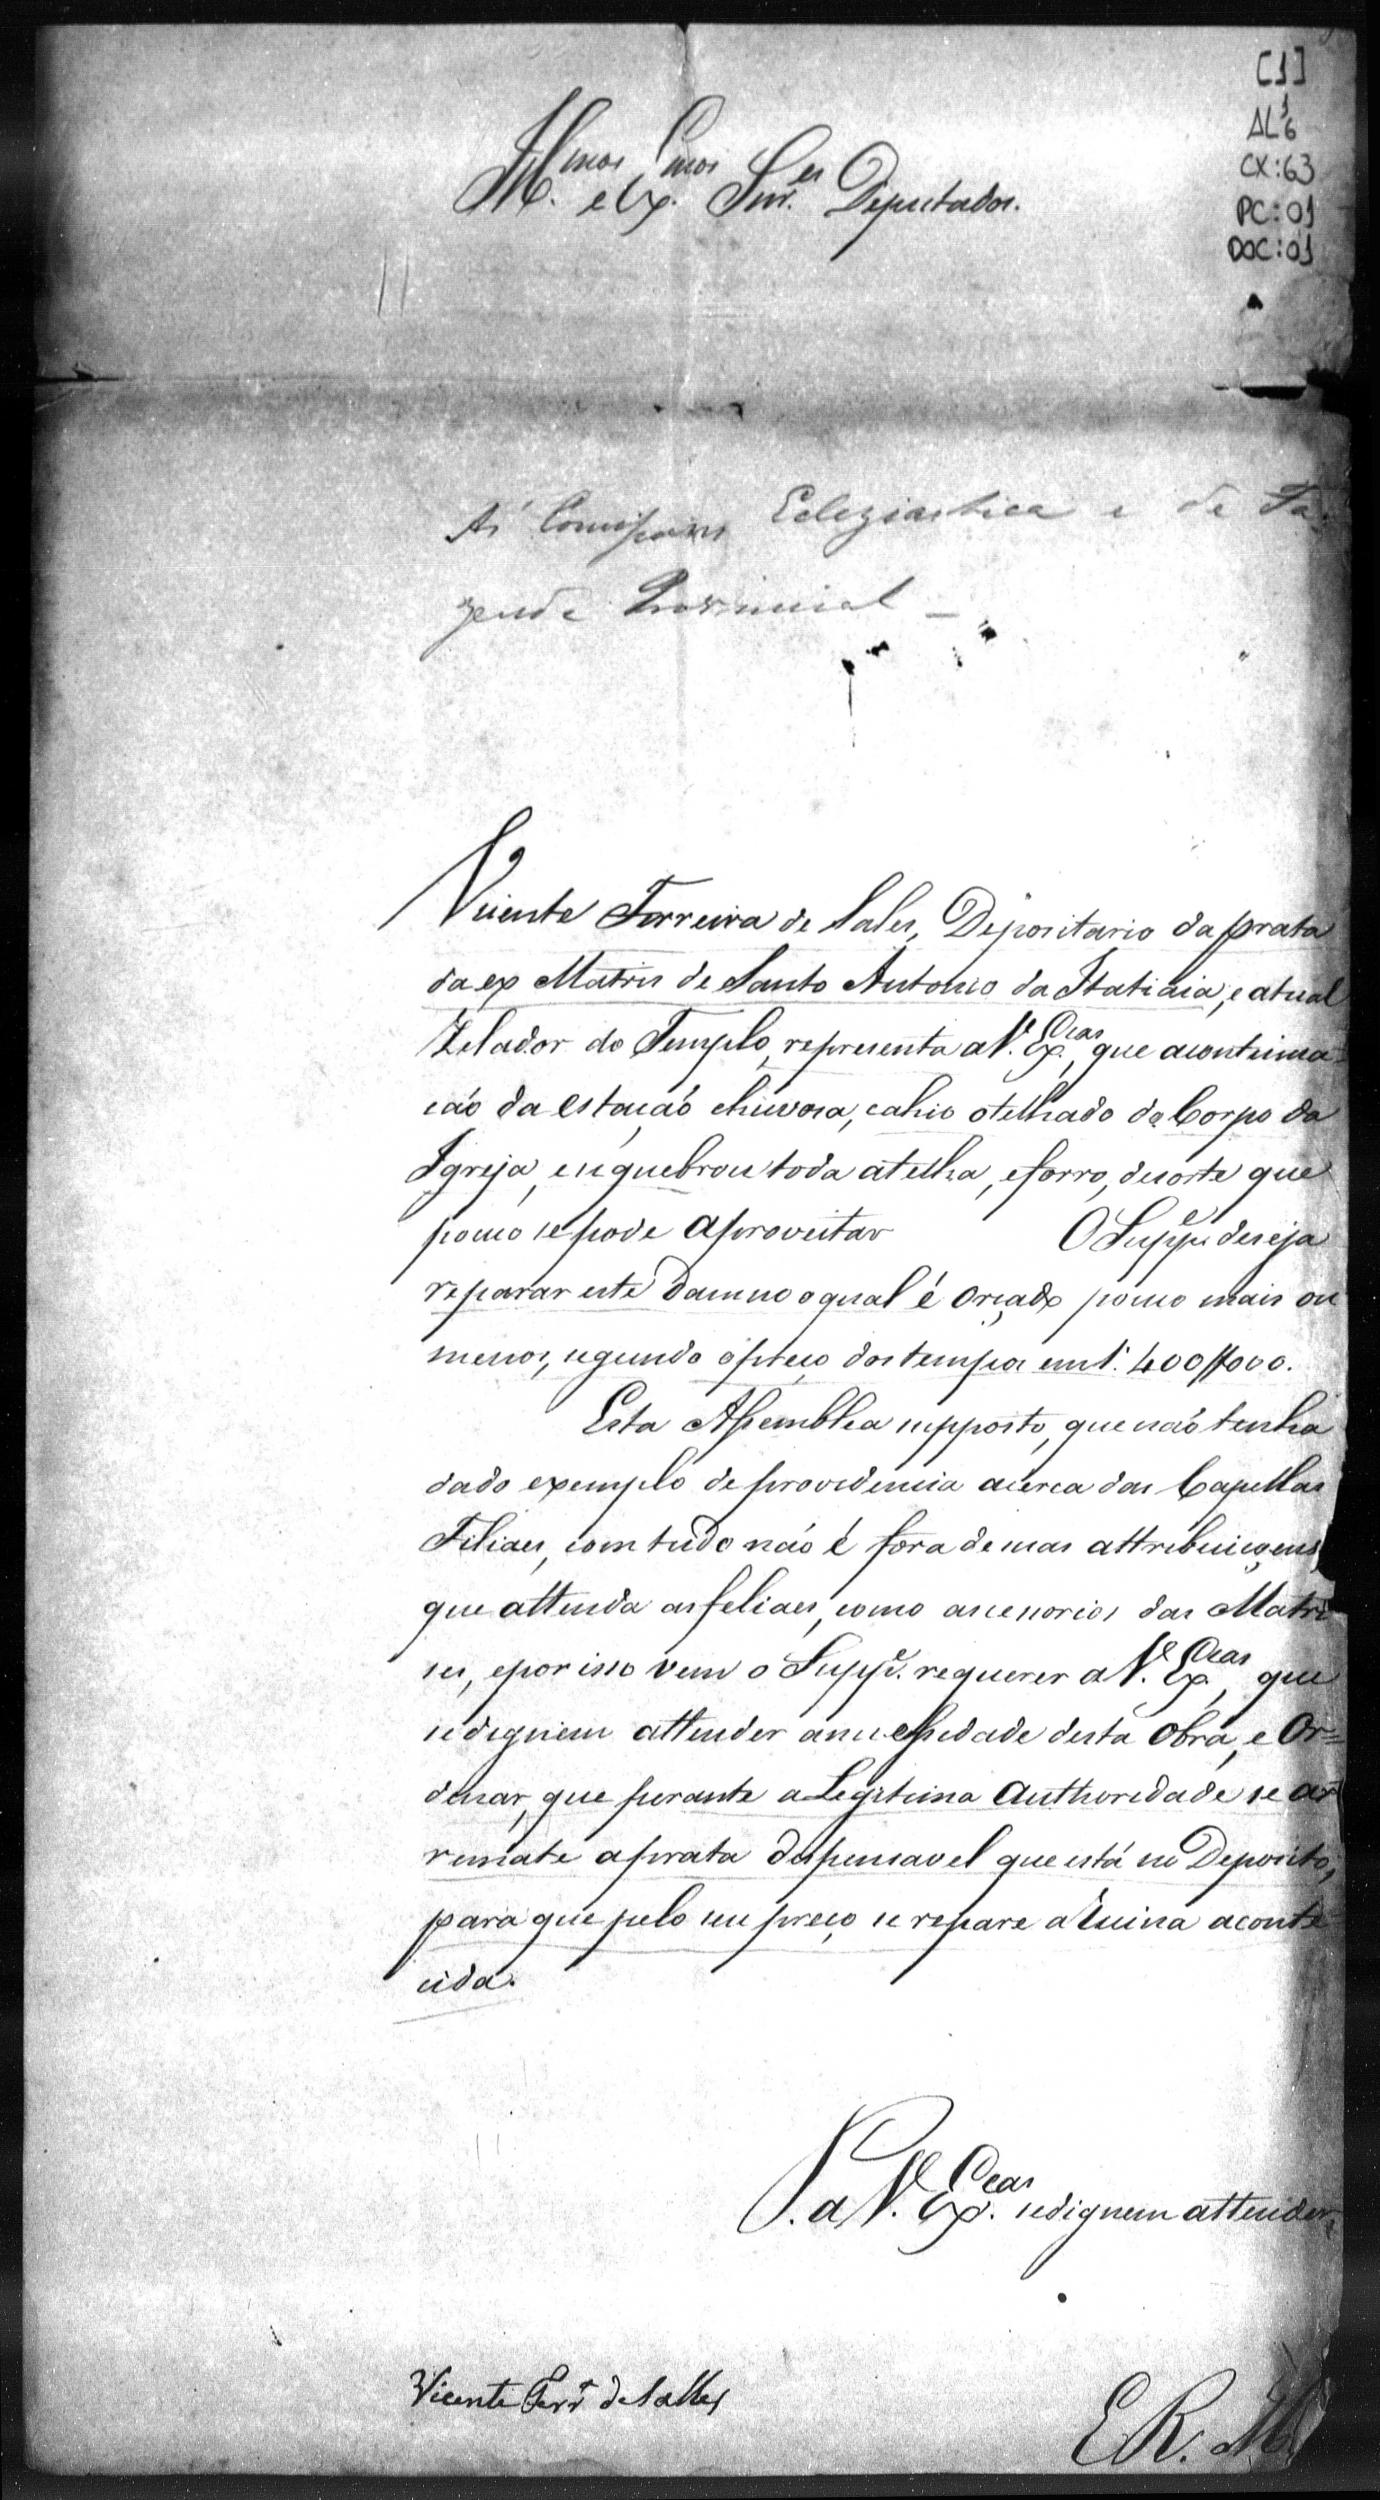 [1]
AL 1/6
CX: 63
PC: 01
DOC: 01
Ill.mos e Ex.mos Snr.es Deputados.
As Comissoens Eclesiastica e de Fa-
zenda Provincial —
Vicente Ferreira de Sales, Depositario da prata
da ex Matris de Santo Antonio da Itatiaia, e atual
Zelador do Templo, representa a V. Ex.cias, que acontinua=
cáo da estacáo chuvosa, cahio otelhado do Corpo da
Igreja, esequebrou toda atelha, eforro, desorte que
pouco sepode aproveitar O Supp.e deseja
reparar este damno oqual é orçado pouco mais ou
menos, segundo opreço dos tempos em 400$000.
Esta Assemblea supposto, que náo tenha
dado exemplo de providencia acerca das Capellas
Filiaes, com tudo náo é fora desuas attribuiçoens,
que attenda asfeliaes, como ascessorios das Matri
ses, eporisso vem o Supp.e requerer a V. Ex.cias, que
sedignem attender anecessidade desta obra, e Or=
denar, que perante aLegitima Authoridade se ar
remate aprata dispensavel que está no Deposito,
para que pelo seu preço, se repare aruina aconte
cida.
P. a V. Ex.cias sedignem attender,
E. R. M.
Vicente Ferr.a de Salles